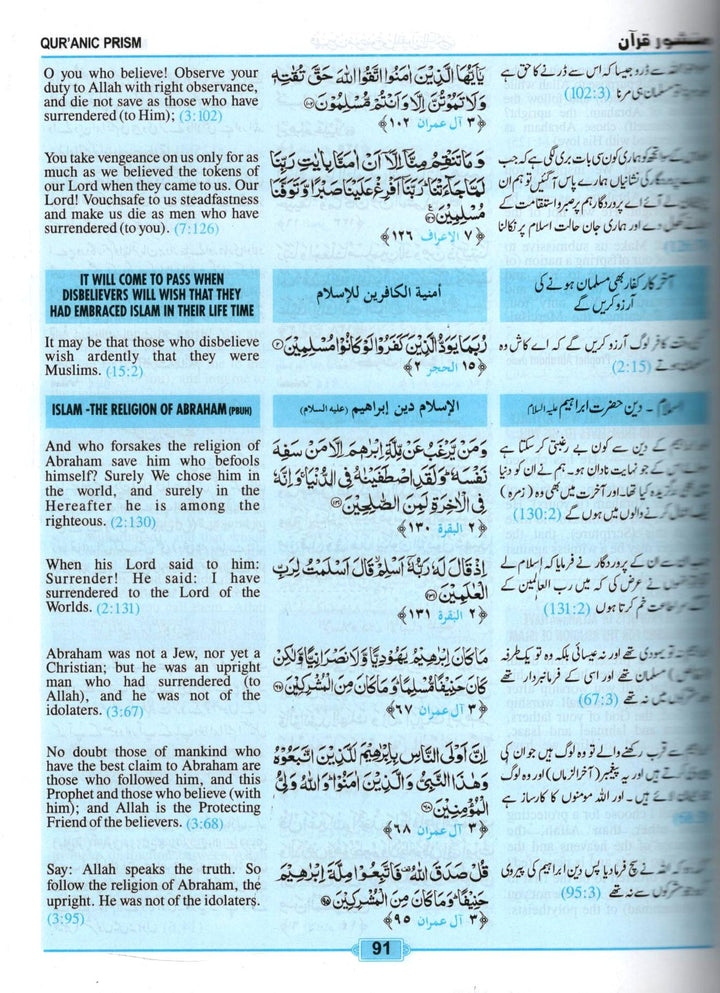 QUR'ANIC PRISM
منشور قرآن
O you who believe! Observe your
duty to Allah with right observance,
and die not save as those who have
surrendered (to Him); (3:102)
يٰٓاَيُّهَا الَّذِيْنَ اٰمَنُوا اتَّقُوا اللّٰهَ حَقَّ تُقٰتِهٖ
وَلَا تَمُوْتُنَّ اِلَّا وَاَنْتُمْ مُّسْلِمُوْنَ
﴿٣ آل عمران ١٠٢﴾
سے ڈرو جیسا کہ اس سے ڈرنے کا حق ہے
مسلمان ہی مرنا (102:3)
You take vengeance on us only for as
much as we believed the tokens of
our Lord when they came to us. Our
Lord! Vouchsafe to us steadfastness
and make us die as men who have
surrendered (to you). (7:126)
وَمَا تَنْقِمُ مِنَّآ اِلَّآ اَنْ اٰمَنَّا بِاٰيٰتِ رَبِّنَا
لَمَّا جَآءَتْنَا رَبَّنَآ اَفْرِغْ عَلَيْنَا صَبْرًا وَّتَوَفَّنَا
مُسْلِمِيْنَ
﴿٧ الاعراف ١٢٦﴾
ہماری کون سی بات بری لگی ہے کہ جب
پروردگار کی نشانیاں ہمارے پاس آگئیں تو ہم ان
لے آئے اے پروردگار ہم پر صبر و استقامت کے
دے اور ہماری جان حالت اسلام پر نکالنا
IT WILL COME TO PASS WHEN
DISBELIEVERS WILL WISH THAT THEY
HAD EMBRACED ISLAM IN THEIR LIFE TIME
أمنية الكافرين للإسلام
آخر کار کفار بھی مسلمان ہونے کی
آرزو کریں گے
It may be that those who disbelieve
wish ardently that they were
Muslims. (15:2)
رُبَمَا يَوَدُّ الَّذِيْنَ كَفَرُوْا لَوْ كَانُوْا مُسْلِمِيْنَ
﴿١٥ الحجر ٢﴾
کافر لوگ آرزو کریں گے کہ اے کاش وہ
ہوتے (2:15)
ISLAM -THE RELIGION OF ABRAHAM (PBUH)
الإسلام دين إبراهيم (عليه السلام)
اسلام ۔ دین حضرت ابراہیم علیہ السلام
And who forsakes the religion of
Abraham save him who befools
himself? Surely We chose him in
the world, and surely in the
Hereafter he is among the
righteous. (2:130)
وَمَنْ يَّرْغَبُ عَنْ مِّلَّةِ اِبْرٰهٖمَ اِلَّا مَنْ سَفِهَ
نَفْسَهٗ وَلَقَدِ اصْطَفَيْنٰهُ فِى الدُّنْيَا وَاِنَّهٗ
فِى الْاٰخِرَةِ لَمِنَ الصّٰلِحِيْنَ
﴿٢ البقرة ١٣٠﴾
کے دین سے کون بے رغبتی کر سکتا ہے
کے جو نہایت نادان ہو۔ ہم نے ان کو دنیا
کیا تھا۔ اور آخرت میں بھی وہ (زمرہ)
کرنے والوں میں ہوں گے (130:2)
When his Lord said to him:
Surrender! He said: I have
surrendered to the Lord of the
Worlds. (2:131)
اِذْ قَالَ لَهٗ رَبُّهٗٓ اَسْلِمْ قَالَ اَسْلَمْتُ لِرَبِّ
الْعٰلَمِيْنَ
﴿٢ البقرة ١٣١﴾
سے ان کے پروردگار نے فرمایا کہ اسلام لے
نے عرض کی کہ میں رب العالمین کے
اطاعت خم کرتا ہوں (131:2)
Abraham was not a Jew, nor yet a
Christian; but he was an upright
man who had surrendered (to
Allah), and he was not of the
idolaters. (3:67)
مَا كَانَ اِبْرٰهِيْمُ يَهُوْدِيًّا وَّلَا نَصْرَانِيًّا وَّلٰكِنْ
كَانَ حَنِيْفًا مُّسْلِمًا وَمَا كَانَ مِنَ الْمُشْرِكِيْنَ
﴿٣ آل عمران ٦٧﴾
نہ تو یہودی تھے اور نہ عیسائی بلکہ وہ تو یک طرفہ
مسلمان تھے اور اسی کے فرمانبردار تھے
میں نہ تھے (67:3)
No doubt those of mankind who
have the best claim to Abraham are
those who followed him, and this
Prophet and those who believe (with
him); and Allah is the Protecting
Friend of the believers. (3:68)
اِنَّ اَوْلَى النَّاسِ بِاِبْرٰهِيْمَ لَلَّذِيْنَ اتَّبَعُوْهُ
وَهٰذَا النَّبِىُّ وَالَّذِيْنَ اٰمَنُوْا وَاللّٰهُ وَلِىُّ
الْمُؤْمِنِيْنَ
﴿٣ آل عمران ٦٨﴾
سے قرب رکھنے والے تو وہ لوگ ہیں جو ان کی
کرتے ہیں اور یہ پیغمبر (آخر الزماں) اور وہ لوگ
لائے ہیں۔ اور اللہ مومنوں کا کارساز ہے
Say: Allah speaks the truth. So
follow the religion of Abraham, the
upright. He was not of the idolaters.
(3:95)
قُلْ صَدَقَ اللّٰهُ فَاتَّبِعُوْا مِلَّةَ اِبْرٰهِيْمَ
حَنِيْفًا وَمَا كَانَ مِنَ الْمُشْرِكِيْنَ
﴿٣ آل عمران ٩٥﴾
کہ اللہ نے سچ فرمادیا پس دین ابراہیم کی پیروی
سے نہ تھے (95:3)
91